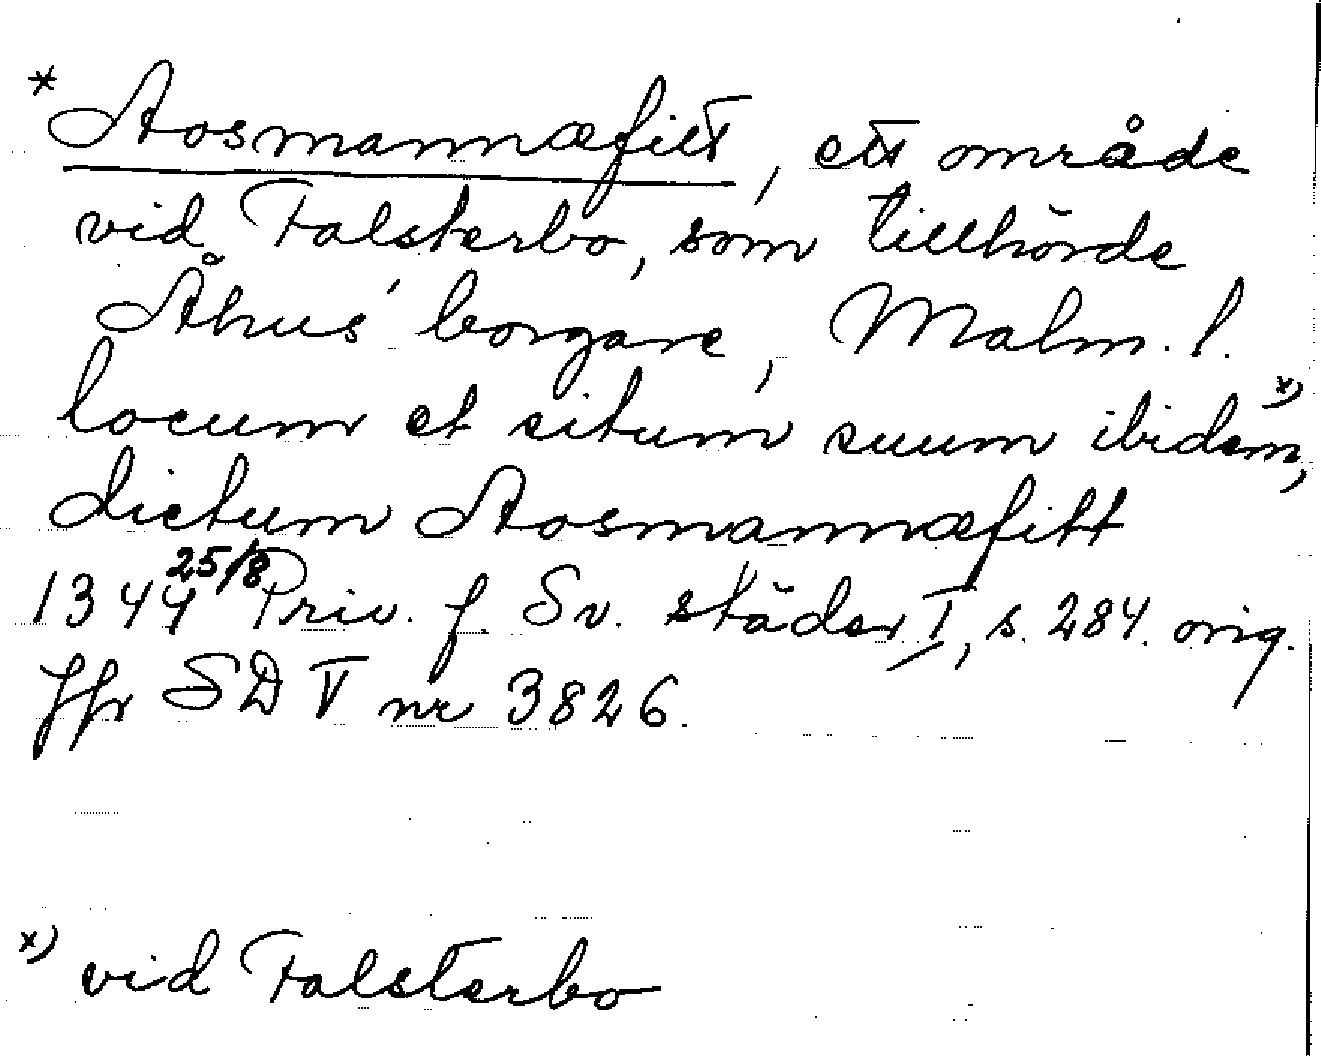 * Aosmannæfitt, ett område
vid Falsterbo, som tillhörde
Åhus' borgare, Malm. l.
locum et situm suum ibidem x),
dictum Aosmannæfitt
1344 25/8 Priv. f. Sv. städer I, s. 284. orig.
Jfr SD V nr 3826.
x) vid Falsterbo